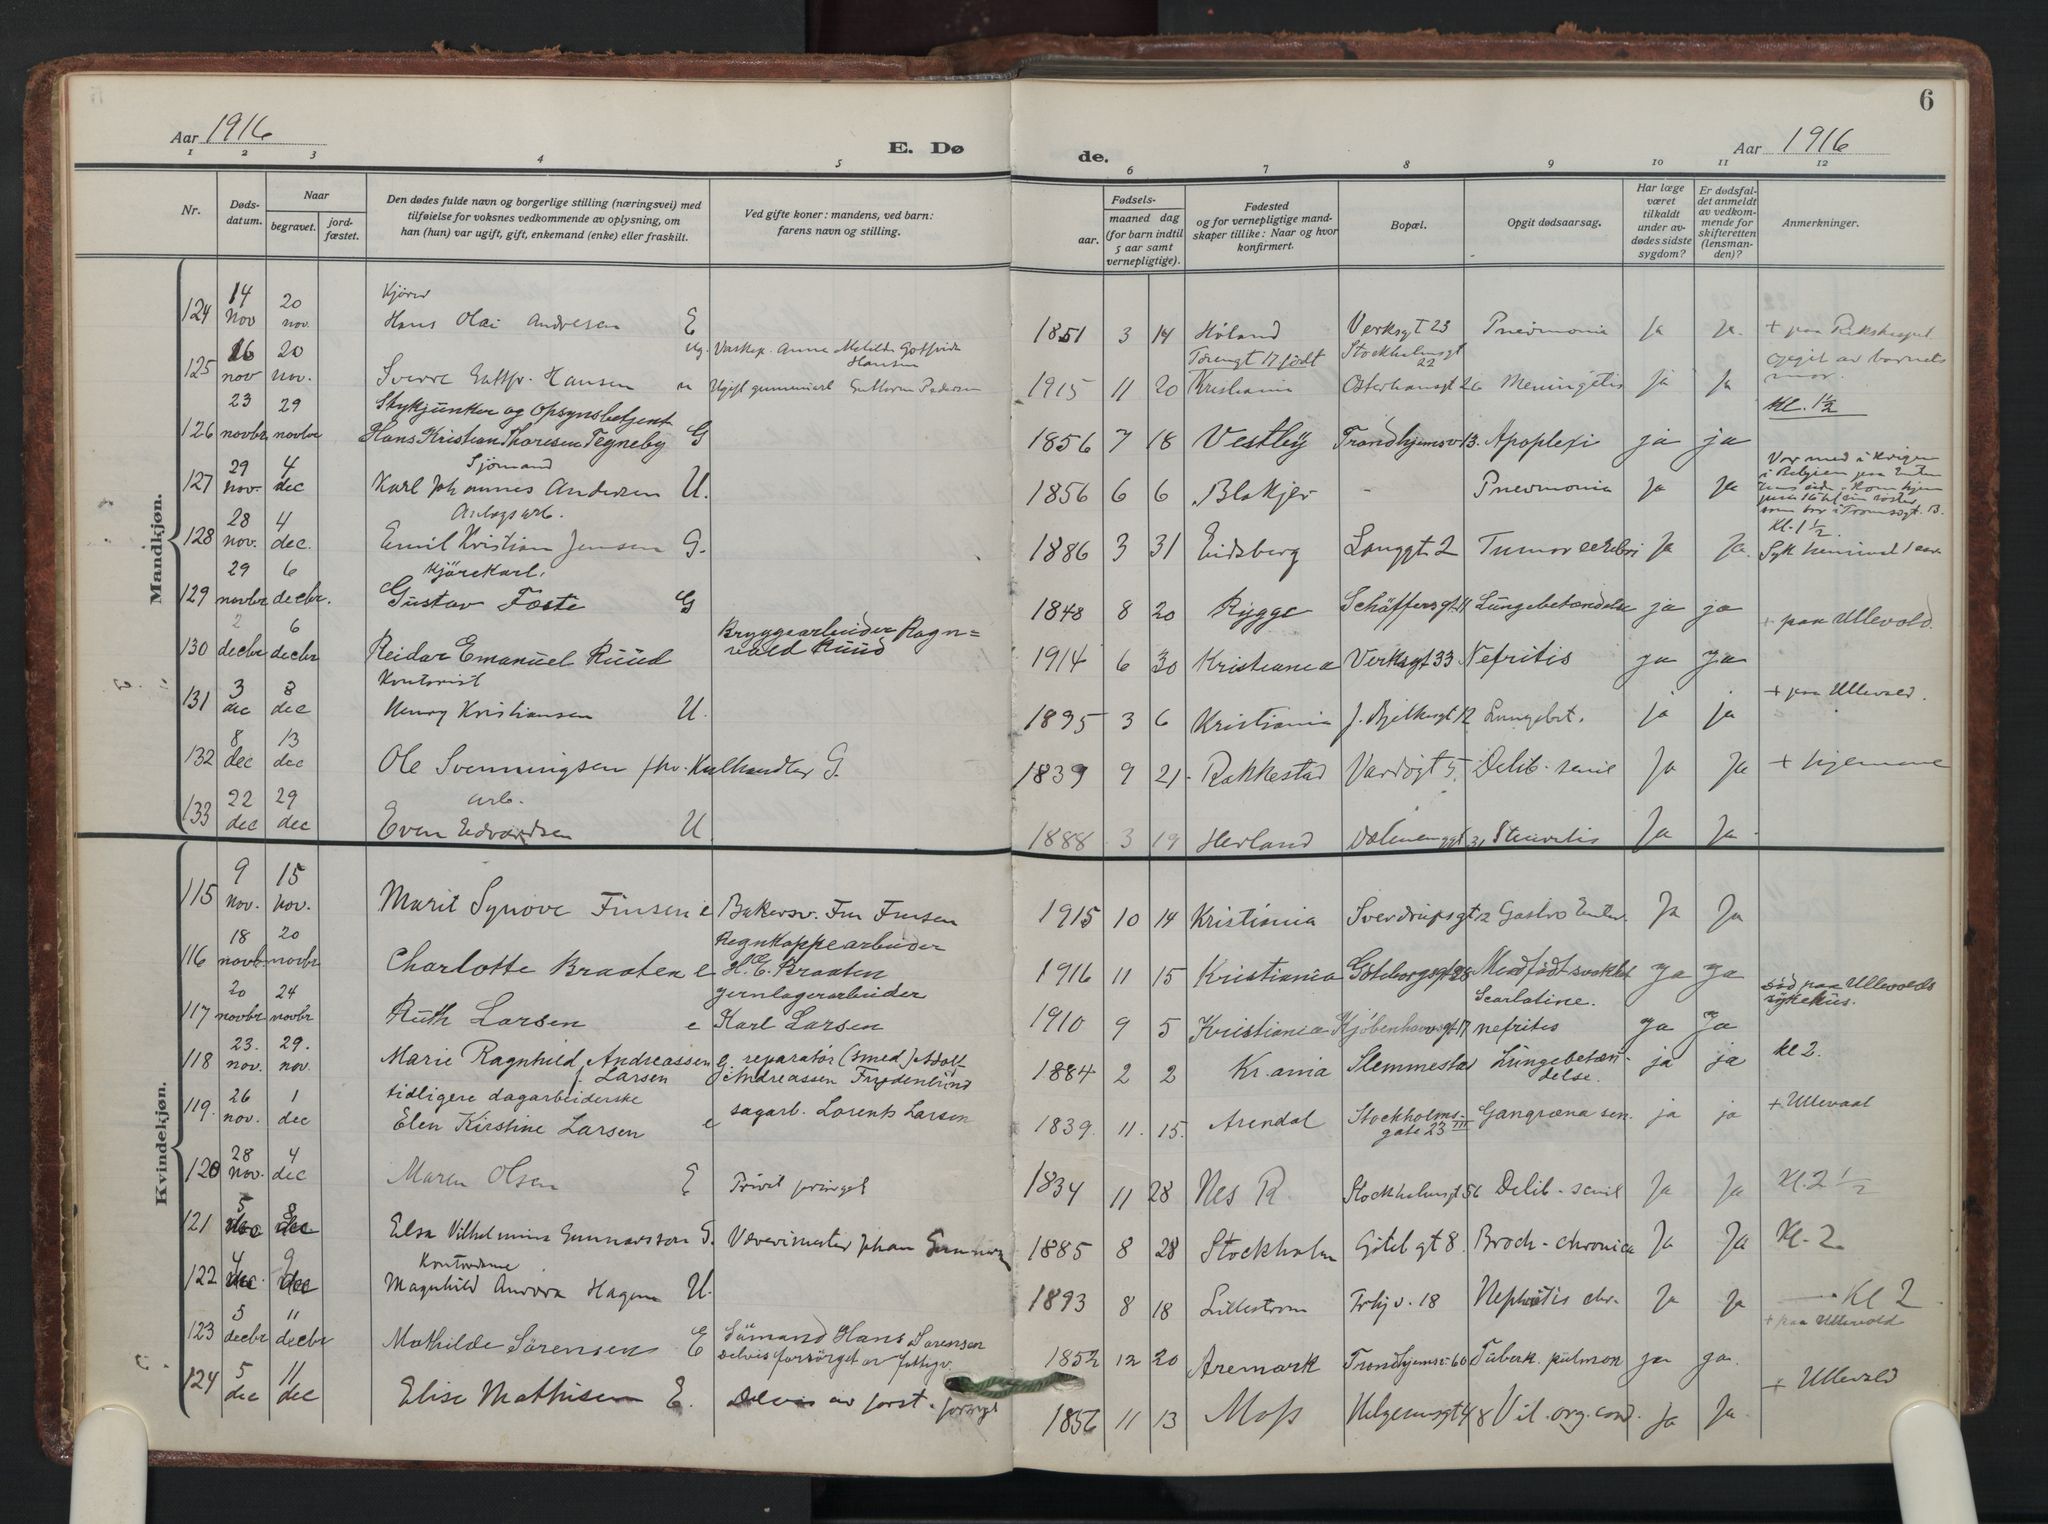 6
Aar 1916
E. Dø
de.
Aar 1916
1 2 3 4 5 6 7 8 9 10 11 12
Nr.
Døds-
datum.
Naar
begravet.
jord-
fæstet.
Den dødes fulde navn og borgerlige stilling (næringsvei) med
tilføielse for voksnes vedkommende av oplysning, om
han (hun) var ugift, gift, enkemand (enke) eller fraskilt.
Ved gifte koner: mandens, ved barn:
farens navn og stilling.
Fødsels-
aar.
maaned dag
(for barn indtil
5 aar samt
vernepligtige).
Fødested
og for vernepligtige mand-
skaper tillike: Naar og hvor
konfirmert.
Bopæl.
Opgit dødsaarsag.
Har læge
været
tilkaldt
under av-
dødes sidste
sygdom?
Er dødsfal-
det anmeldt
av vedkom-
mende for
skifteretten
(lensman-
den)?
Anmerkninger.
Mandkjøn.
14 20 Kjører
124 nov nov. Hans Olai Andresen E 1851 3 14 Høland Verksgt 23 Pneumonia Ja Ja. + paa Rikshospit
16 20 Anna Gotfride Hansen Torengt 17 født Stockholmsgt 22 opgit av barnets
125 nov nov. Sverre Hansen u Ugift 1915 11 20 Kristiania 26 Meningitis Ja Ja mor.
23 29 Stykjunker og Opsynsbetjent Kl. 1½
126 novbr novbr Hans Kristian Thoresen Tegneby G 1856 7 18 Vestby Trondhjemsv 13. Apoplexi ja ja
29 4 Sjømand Var med i krigen
127 nov. dec Karl Johannes Andersen U. 1856 6 6 Blakjer - Pneumonia Ja Ja i Belgien paa
som bor i Tromsøgt. 13.
28 4 Anlegsarb. Kl. 1½
128 nov. dec. Emil Kristian Jensen G. 1886 3 31 Eidsberg Langgt 2 Tumor cerebri Ja Ja. Syk 1 aar
29 6 Kjørekarl.
129 novbr decbr. Gustav Foste G 1848 8 20 Rygge Schäffersgt 11 Lungebetændelse ja ja + paa Ullevold.
2 6 Bryggearbeider Ragn=
130 decbr decbr Reidar Emanuel Ruud vald Ruud 1914 6 30 Kristiania Verksgt 33 Nefritis ja ja
3 8 Kontorist + paa Ullevold.
131 dec dec Henry Kristiansen U. 1895 3 6 Kristiania J. Bjelkesgt 12 Lungebet. ja ja
8 13
132 dec dec Ole Svenningsen fhv. Kulhandler G. 1839 9 21 Rakkestad Vardøgt 5. Debil. senil Ja Ja + hjemme
22 29 arb.
133 dec dec Even Edvardsen U. 1888 3 19 Herland Dælenenggt 31 Ja Ja
Kvindekjøn.
9 15
115 nov. nov. Marit Synøve Finsen e Bakersv. Finsen 1915 10 14 Kristiania Sverdrupsgt 12 Gastro Enter. Ja Ja
18 20 Regnkappearbeider
116 novbr novbr Charlotte Braaten e H. C. Braaten 1916 11 15 Kristiania Göteborggt 28 Medfødt svakhet ja ja død paa Ullevolds
20 24 jernlagerarbeider Scarlatine. sykehus.
117 novbr novbr Ruth Larsen e Karl Larsen 1910 9 5 Kristiania Kjøbenhavnsgt 17 nefritis ja ja
23. 29. kl 2.
118 nov. nov. Marie Ragnhild Andreassen g. reparatør (smed) Adolf 1884 2 2 Kr.ania Slemmestad Lungebetæn- ja ja
f. Larsen Andreassen Frydenlund delse.
26 1 tidligere dagarbeiderske
119. nov. dec Elen Kirstine Larsen e sagarb. Lorents Larsen 1839. 11. 15. Arendal Stockholms- Gangræna sen. ja ja + Ullevaal
gate 23 III
28 4
120 nov. dec Maren Olsen E Privat forsørget 1834 11 28 Nes R. Stockholmsgt 56 Debil. senil Ja Ja Kl. 2½
5 8
121 dec dec Elsa Vilhelmina Gunnarsson G. Væverimester Johan Gunnars 1885 8 28 Stockholm Götebgt 8. Bronch. chronica Ja Ja Kl. 2
4 9 Kontordame
122 dec. dec Magnhild Aurora Hagen U. 1893 8 18 Lillestrøm Trhjv. 18 Nephritis chr. Ja Ja Kl 2
5 11 + paa Ullevold
123 decbr decbr Mathilde Sørensen E Sømand Hans Sørensen 1852 12 20 Aremark Trondhjemsv 60 Tuberk. pulmon ja ja.
delvis forsørget av fattigv.
5 11
124 dec dec Elise Mathisen E. Delvis av forst. forsørget 1856 11 13 Moss Helgesensgt 48 Vit. org. cord. Ja Ja. + Ullevold